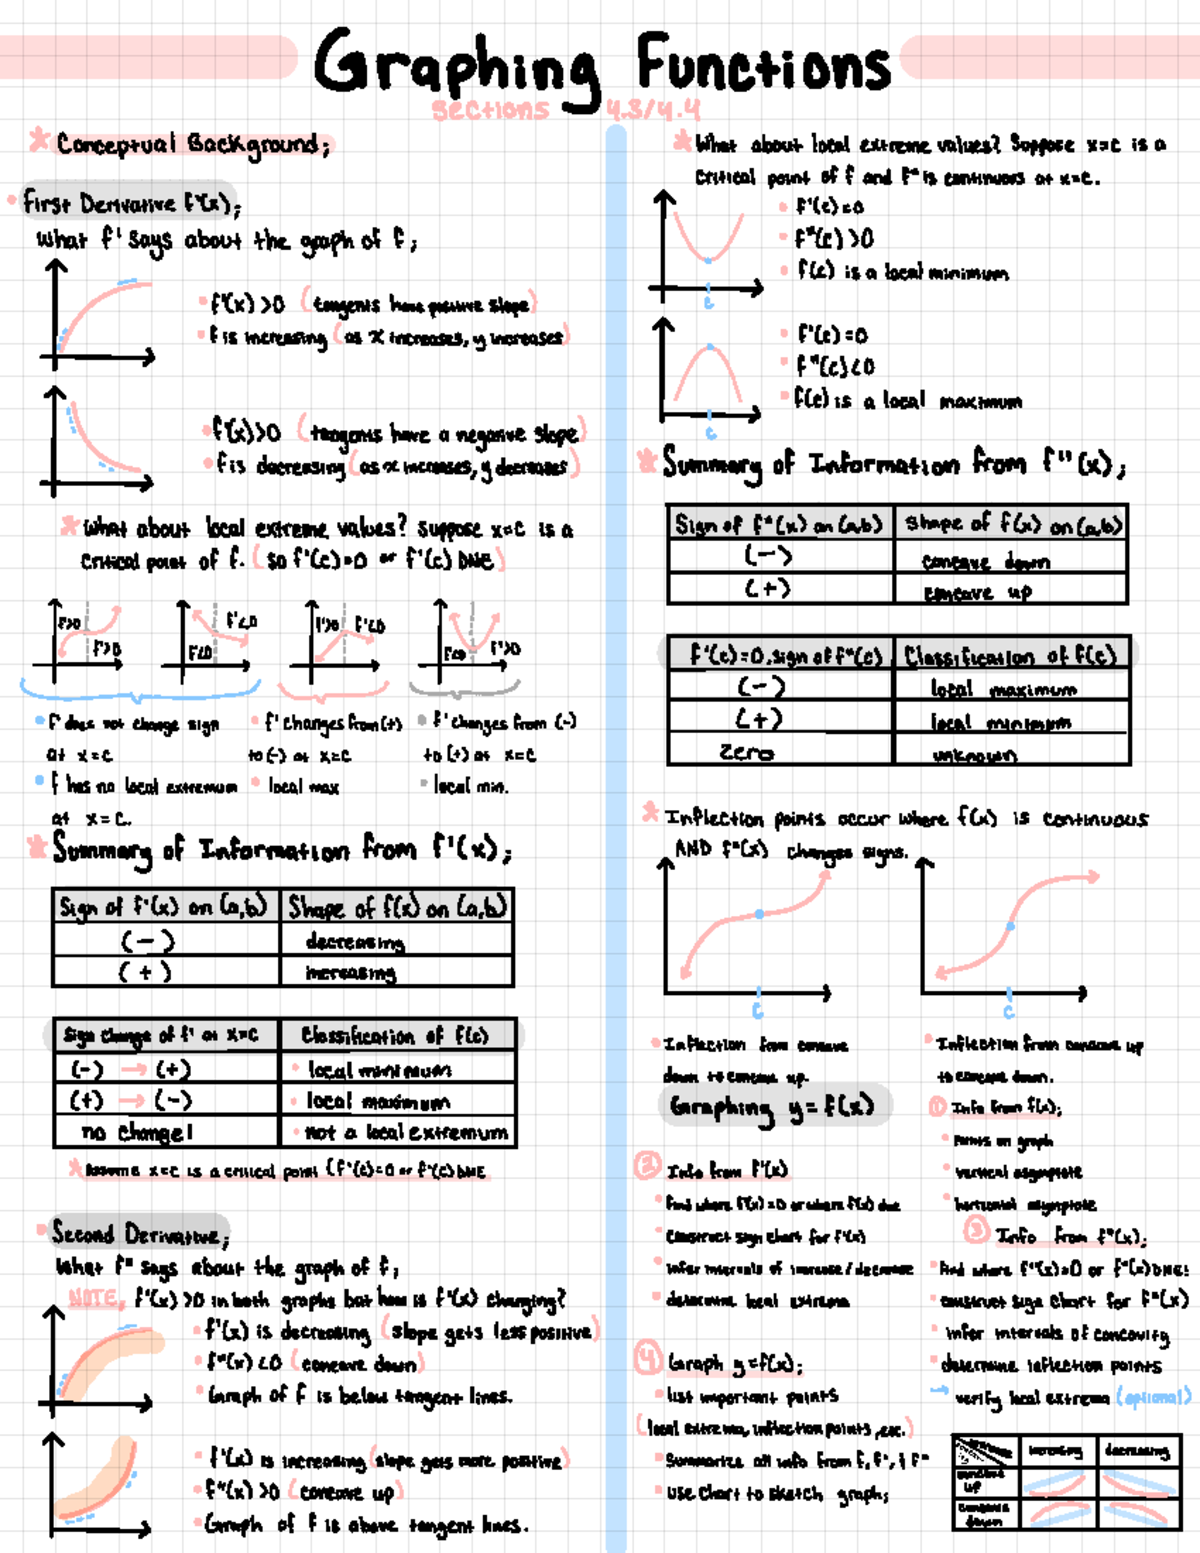 Graphing Functions
sections 4.3/4.4
* Conceptual Background;
• First Derivative f'(x);
What f' says about the graph of f;
• f'(x) >0 (tangents have positive slope)
• f is increasing (as x increases, y increases)
• f'(x)>0 (tangents have a negative slope)
• f is decreasing (as x increases, y decreases)
* What about local extreme values? Suppose x=c is a
critical point of f. (so f'(c)=0 or f'(c) DNE)
f'>0 f'>0
f'<0 f'<0
f'>0 f'<0
f'<0 f'>0
• f' does not change sign
at x=c
• f has no local extremum
at x=c.
• f' changes from (+)
to (-) at x=c
• local max
• f' changes from (-)
to (+) at x=c
• local min.
* Summary of Information from f'(x);
Sign of f'(x) on (a,b) Shape of f(x) on (a,b)
(-) decreasing
(+) increasing
Sign change of f' at x=c Classification of f(c)
(-) → (+) • local minimum
(+) → (-) • local maximum
no change! • not a local extremum
* Assume x=c is a critical point (f'(c)=0 or f'(c) DNE
• Second Derivative;
What f" says about the graph of f;
NOTE, f'(x) >0 in both graphs but how is f'(x) changing?
• f'(x) is decreasing (slope gets less positive)
• f"(x) <0 (concave down)
• Graph of f is below tangent lines.
• f'(x) is increasing (slope gets more positive)
• f"(x) >0 (concave up)
• Graph of f is above tangent lines.
* What about local extreme values? Suppose x=c is a
critical point of f and f" is continuous at x=c.
• f'(c)=0
• f"(c) >0
• f(c) is a local minimum
c
• f'(c)=0
• f"(c)<0
• f(c) is a local maximum
c
* Summary of Information from f"(x);
Sign of f"(x) on (a,b) Shape of f(x) on (a,b)
(-) concave down
(+) concave up
f'(c)=0, sign of f"(c) Classification of f(c)
(-) local maximum
(+) local minimum
Zero unknown
* Inflection points occur where f(x) is continuous
AND f"(x) changes signs.
c
c
• Inflection from concave
down to concave up.
• Inflection from concave up
to concave down.
Graphing y=f(x)
① Info from f(x);
• Points on graph
• vertical asymptote
• horizontal asymptote
② Info from f'(x)
• find where f'(x)=0 or where f'(x) dne
• construct sign chart for f'(x)
• infer intervals of increase/decrease
• determine local extrema
③ Info from f"(x);
• find where f"(x)=0 or f"(x) DNE!
• construct sign chart for f"(x)
• infer intervals of concavity
• determine inflection points
→ verify local extrema (optional)
④ Graph y=f(x);
• list important points
(local extrema, inflection points, etc.)
• Summarize all info from f, f', & f"
• Use chart to sketch graph;
increasing decreasing
concave up
concave down